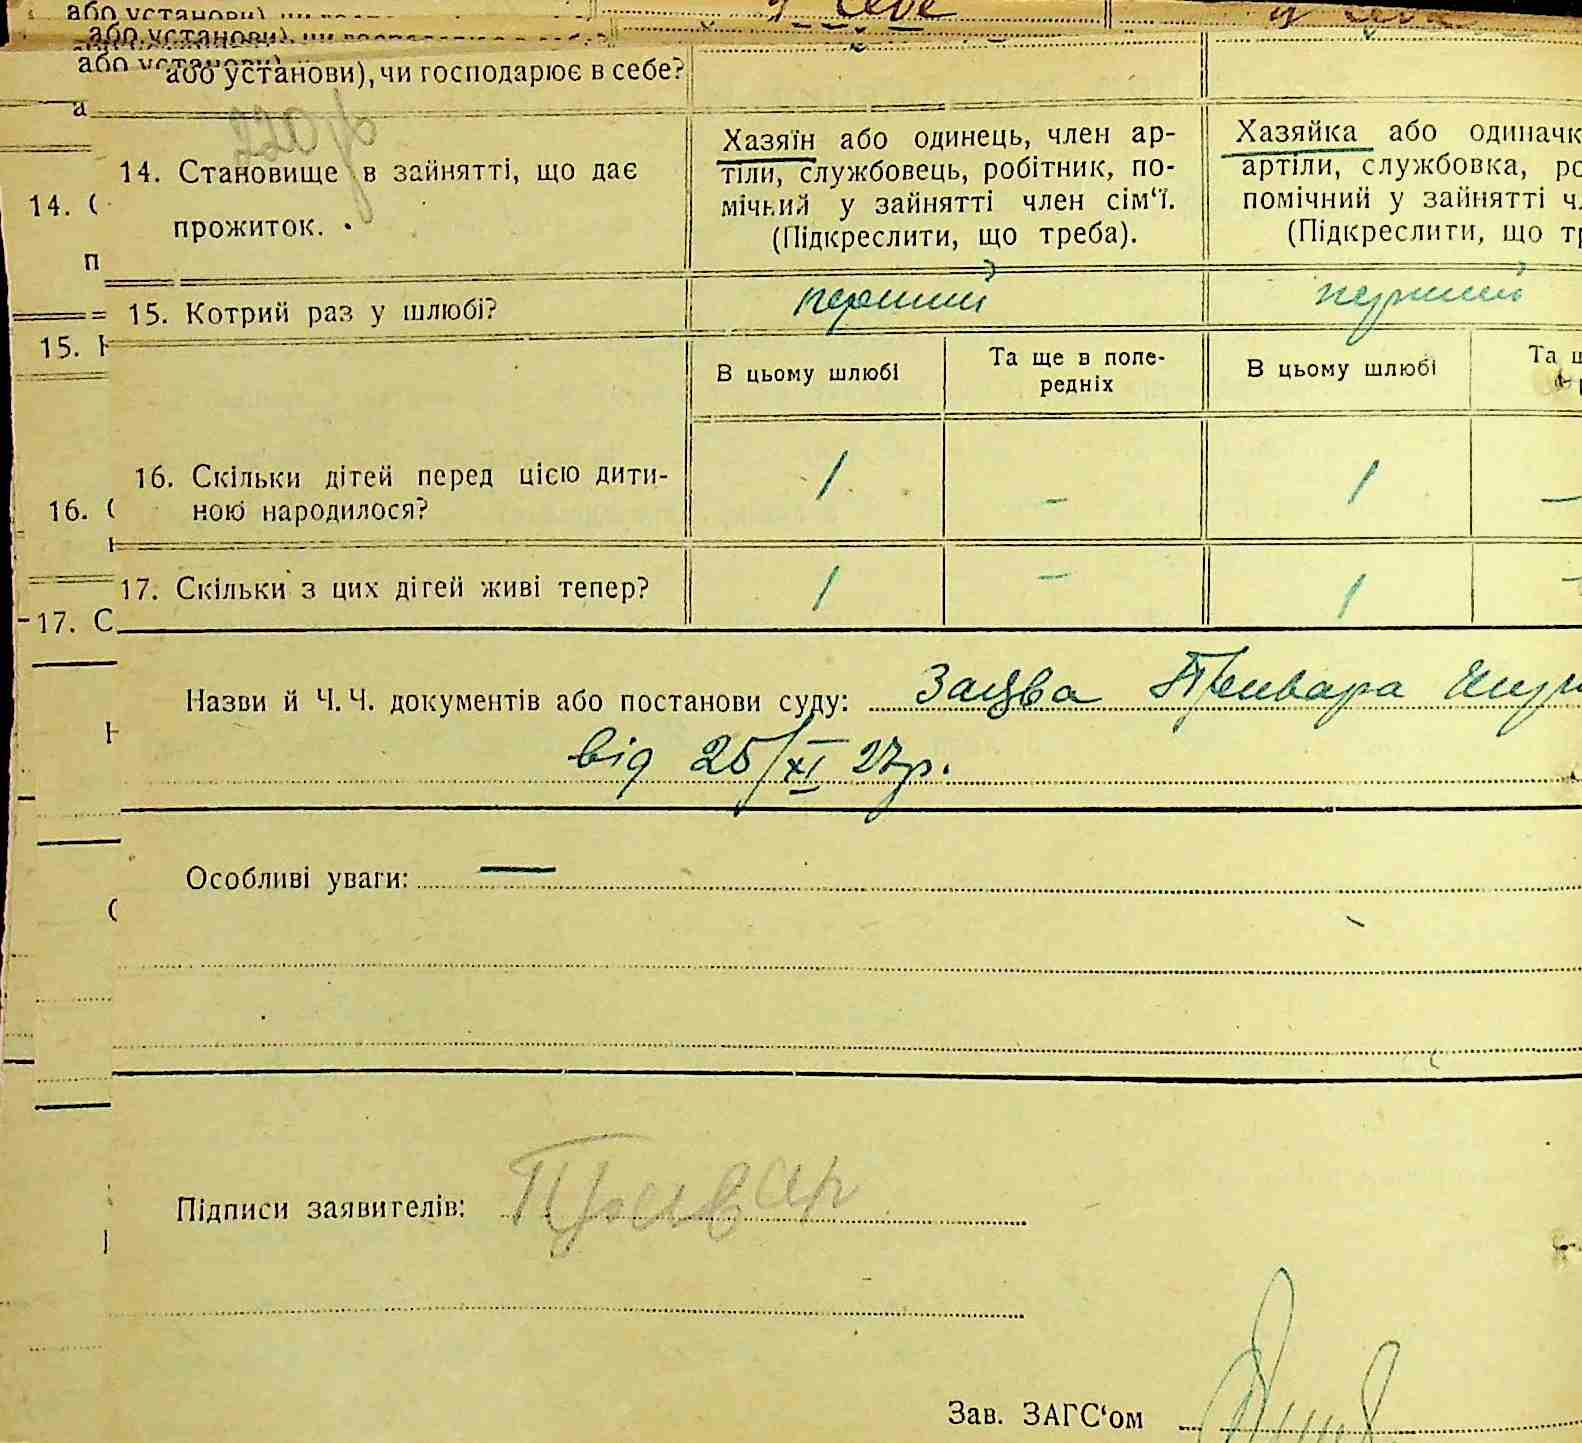 або установи), чи господарює в себе?
14. Становище в зайнятті, що дає
прожиток.
Хазяїн або одинець, член ар-
тіли, службовець, робітник, по-
мічний у зайнятті член сім‘ї.
(Підкреслити, що треба).
Хазяйка або одиначк
артіли, службовка, ро
помічний у зайнятті чл
(Підкреслити, що тр
15. Котрий раз у шлюбі?
перший
перший
В цьому шлюбі
Та ще в попе-
редніх
В цьому шлюбі
Та щ
16. Скільки дітей перед цією дити-
ною народилося?
1 - 1 -
17. Скільки з цих дітей живі тепер?
1 - 1 -
Назви й Ч. Ч. документів або постанови суду:
від 25/XI 27р.
Особливі уваги: —
Підписи заявителів:
Зав. ЗАГС‘ом
14.
15.
16.
17. С